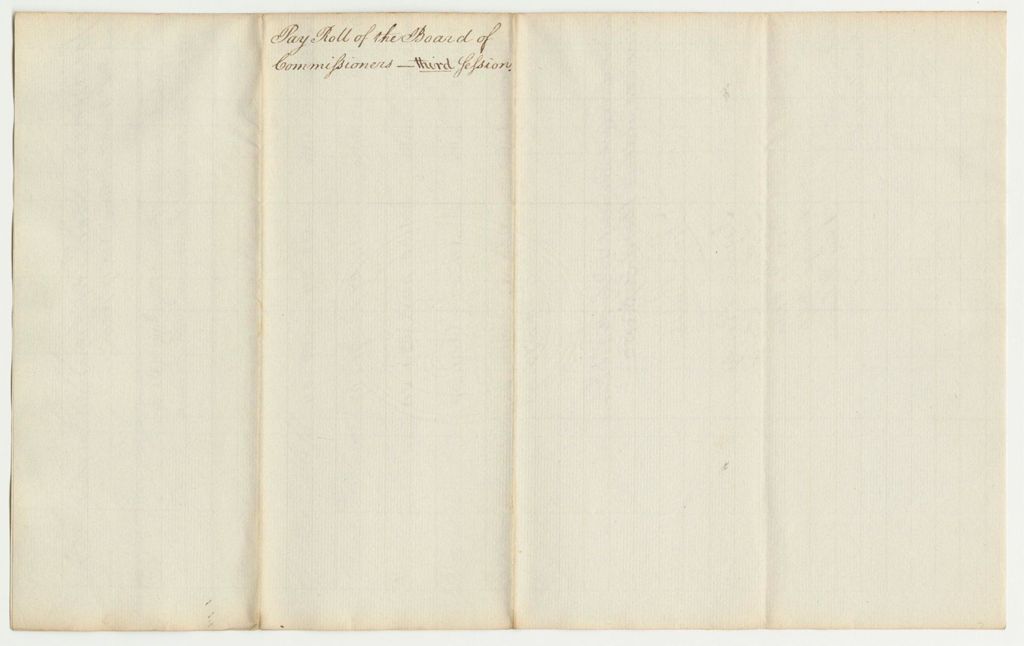 Pay Roll of the Board of
Commiſsioners — third Seſsion.